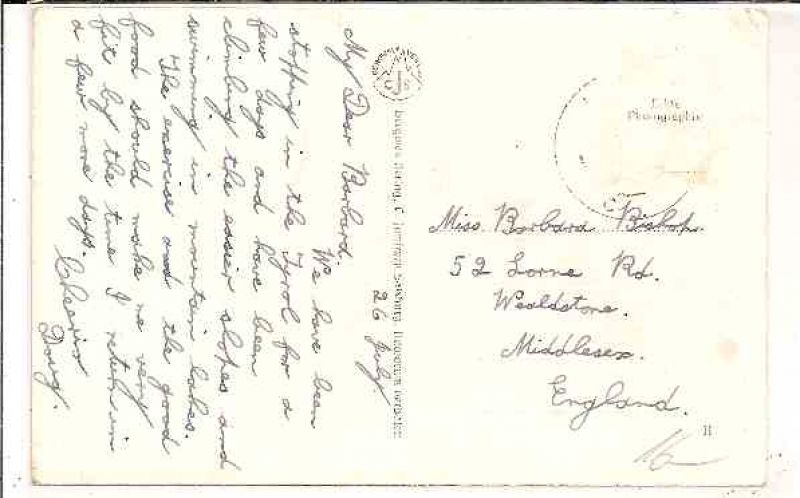 26 July.
My Dear Barbard.
We have been
stopping in the Tyrol for a
few days and have been
climbing the easier slopes and
swimming in mountain lakes.
The exercise and the good
food should make me very
fit by the time I return in
a few more days.
Cheerio
Doug.
Echte
Photographie
Miss Barbara Bishop.
52 Lorne Rd.
Wealdstone.
Middlesex.
England.
H
16